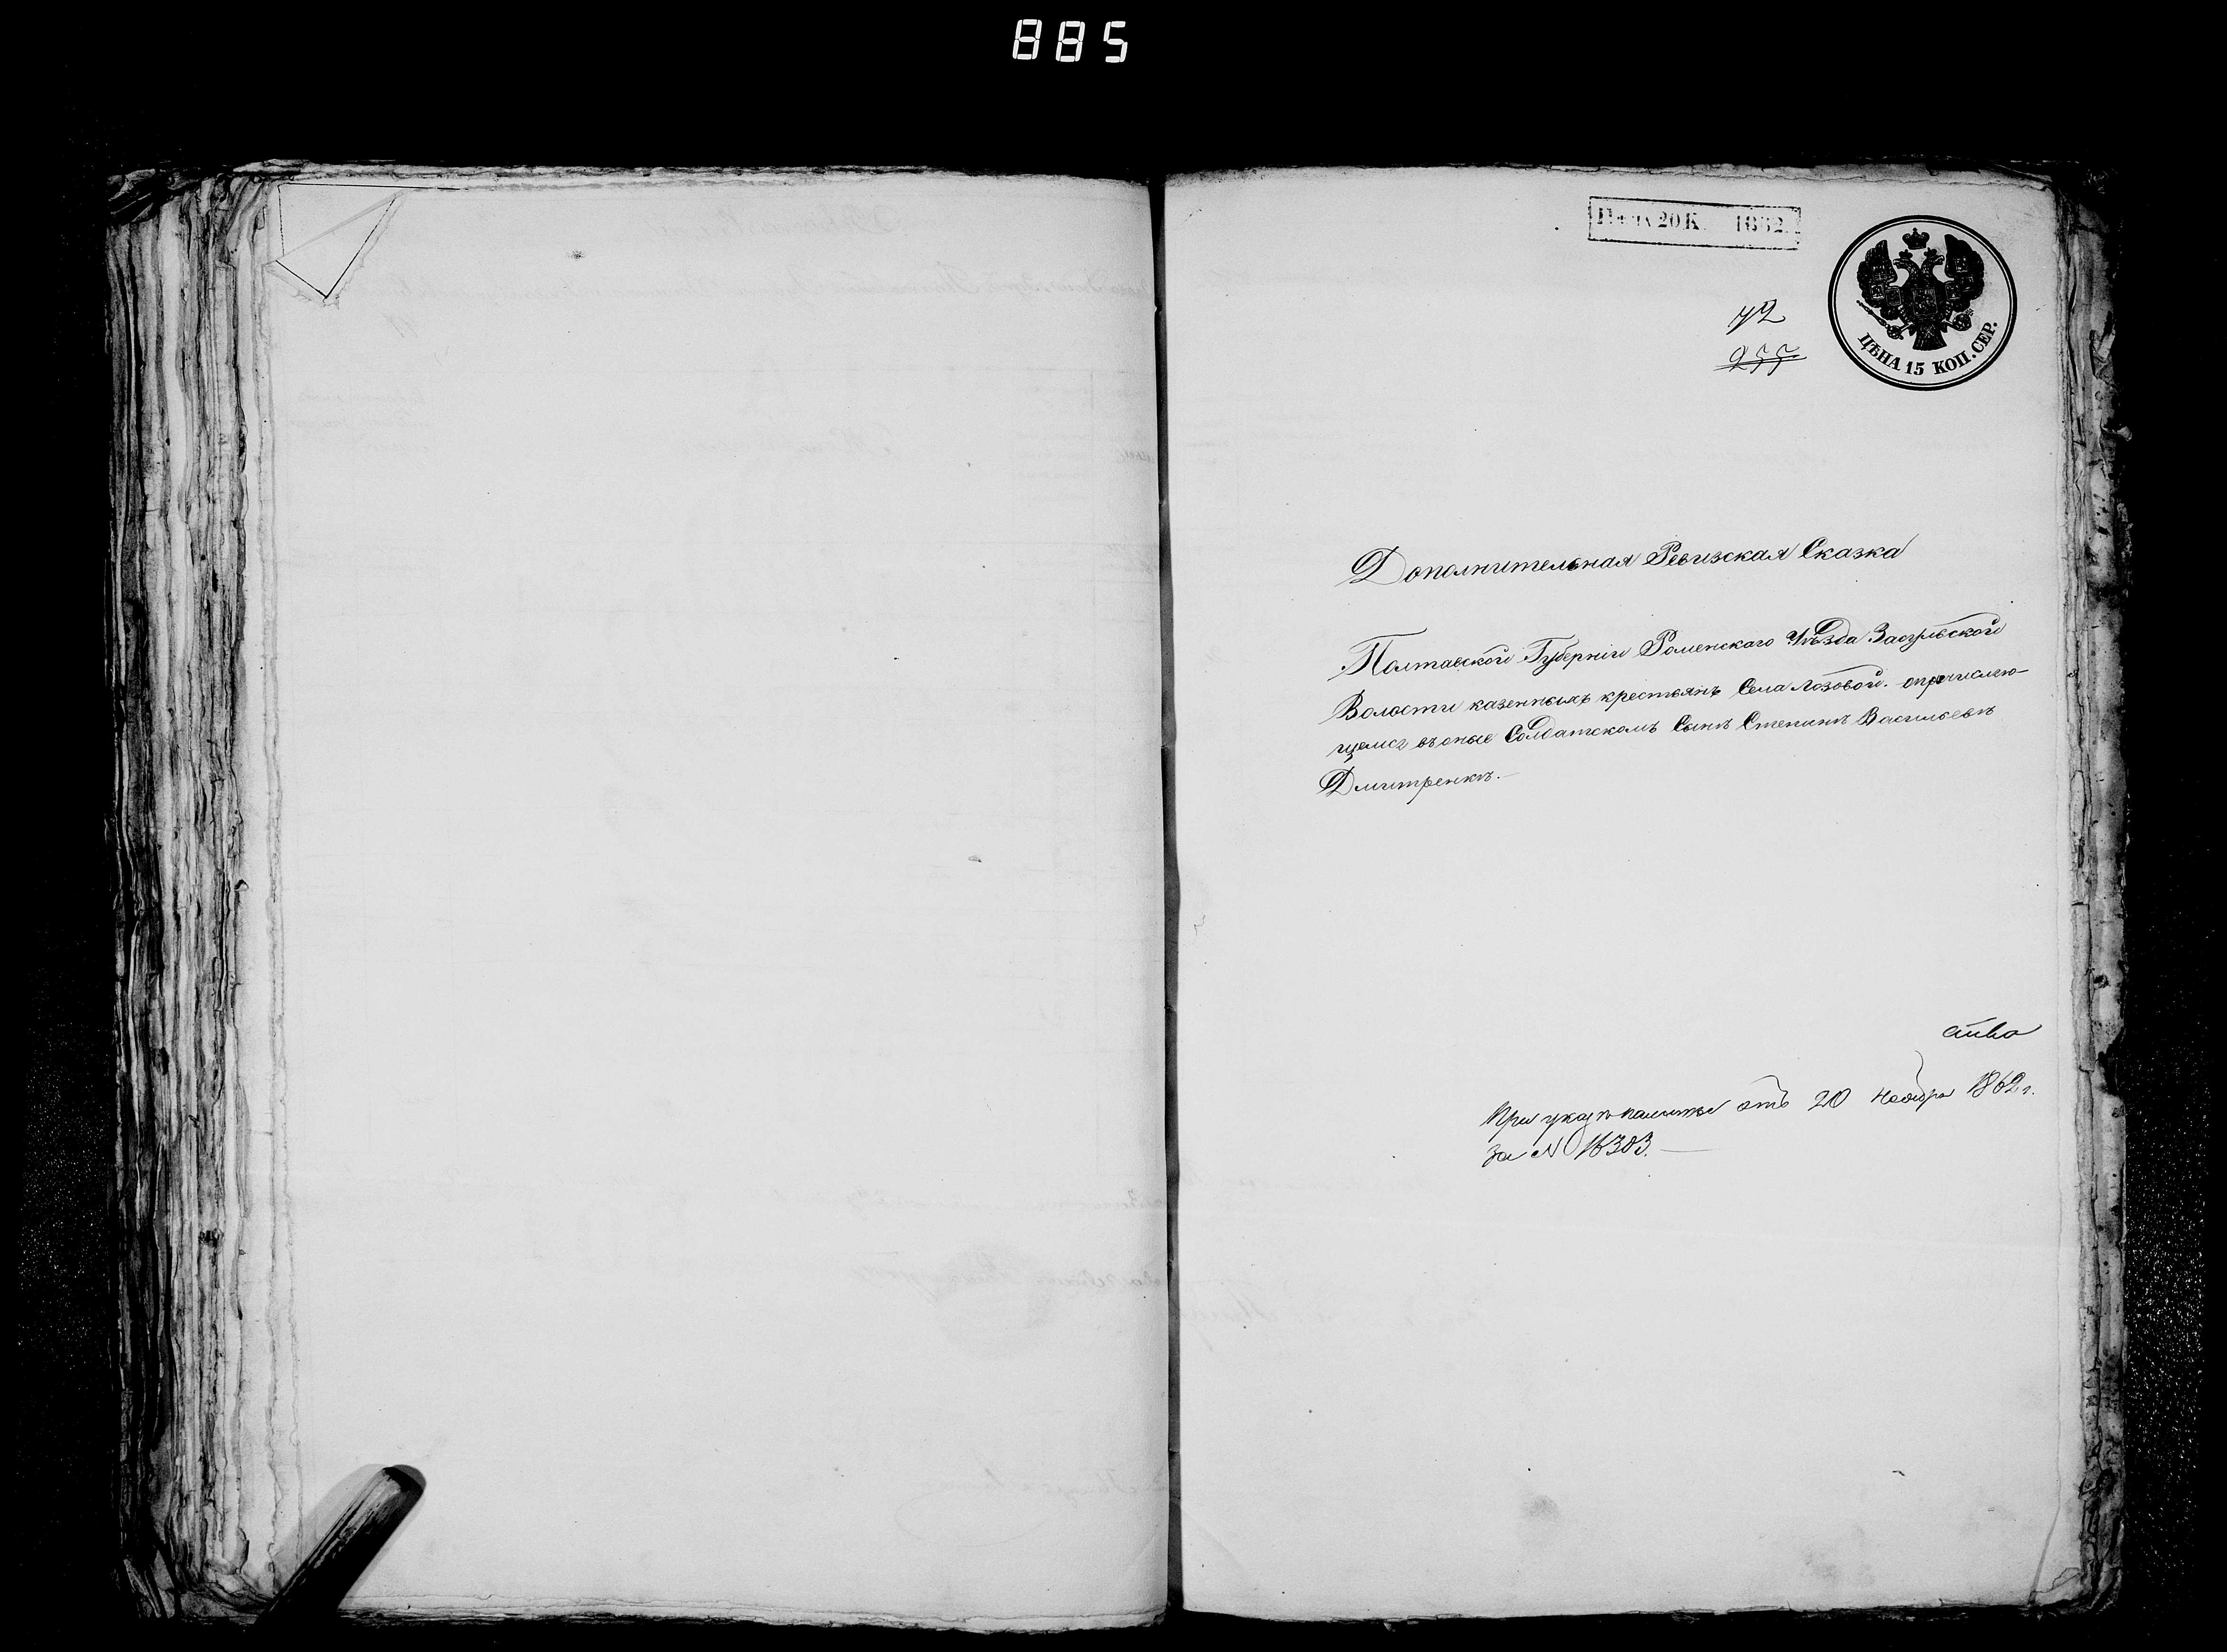 885
Цѣна 20 К. 1862.
ЦѢНА 15 КОП. СЕР.
72
255
Дополнительная Ревизская Сказка
Полтавской Губерніи Роменскаго Уѣзда Засульской
Волости казенныхъ крестьянъ Села Лозовой. о причисляю-
щемся въ оные Солдатскомъ Сынѣ Степанѣ Васильевѣ
Дмитренкѣ.
При указѣ палаты отъ 20 Ноября 1862 г.
за N 16303.